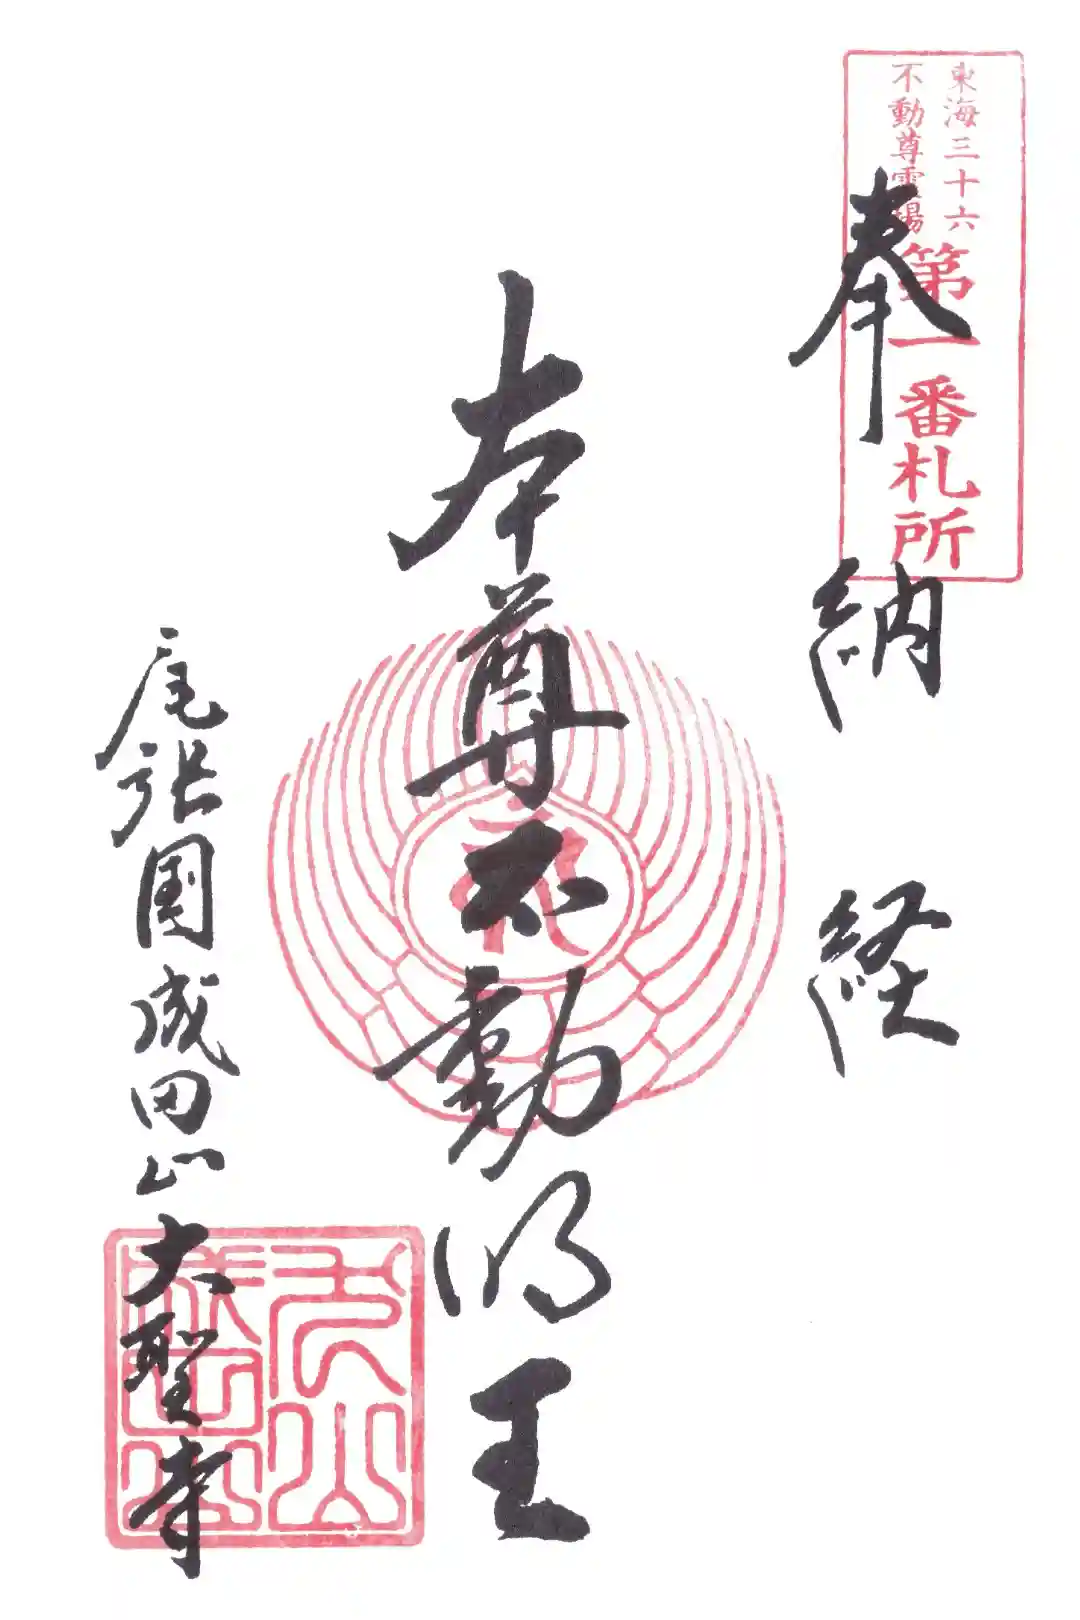 東海三十六
不動尊霊場
第一番札所
奉納経
本尊不動明王
尾張国成田山大聖寺
犬山
成田山